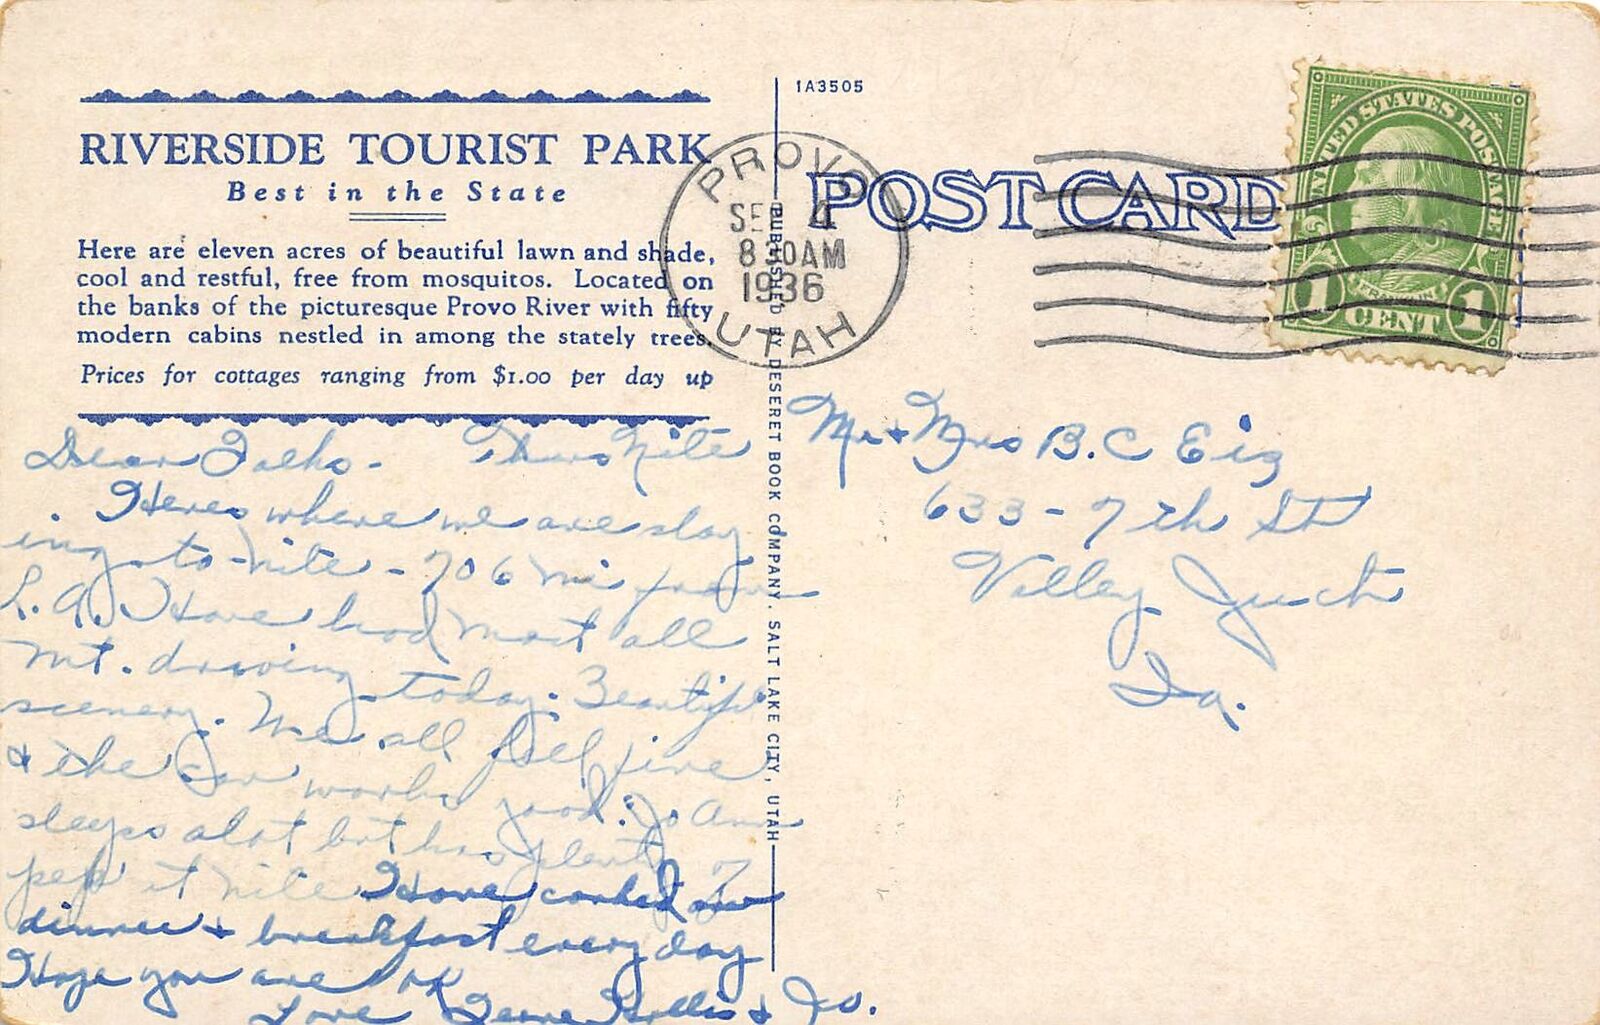 RIVERSIDE TOURIST PARK
Best in the State
Here are eleven acres of beautiful lawn and shade,
cool and restful, free from mosquitos. Located on
the banks of the picturesque Provo River with fifty
modern cabins nestled in among the stately trees.
Prices for cottages ranging from $1.00 per day up
Dear Folks - Thurs Nite
Heres where we are stay
ing to-nite - 706 mi from
L.A. Have had most all
Mt. driving today. Beautiful
scenery. We all feel fine
& the car works good. Jo Ann
sleeps alot but has plenty of
pep at nite Have cooked our
dinner & breakfast every day
Hope you are OK
Love & Jo.
PUBLISHED BY DESERET BOOK COMPANY, SALT LAKE CITY, UTAH
1A3505
POST CARD
PROVO
SEP 4
830AM
1936
UTAH
UNITED STATES POSTAGE
FRANKLIN
1 CENT 1
Mr & Mrs B.C Eiz
633-7th St
Valley Juct
Ia.